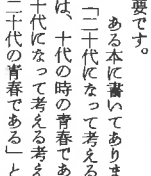 要です。
ある本に書いてありま
「二十代になって考える
は、十代の時の青春であ
十代になって考える考え
二十代の青春である」と